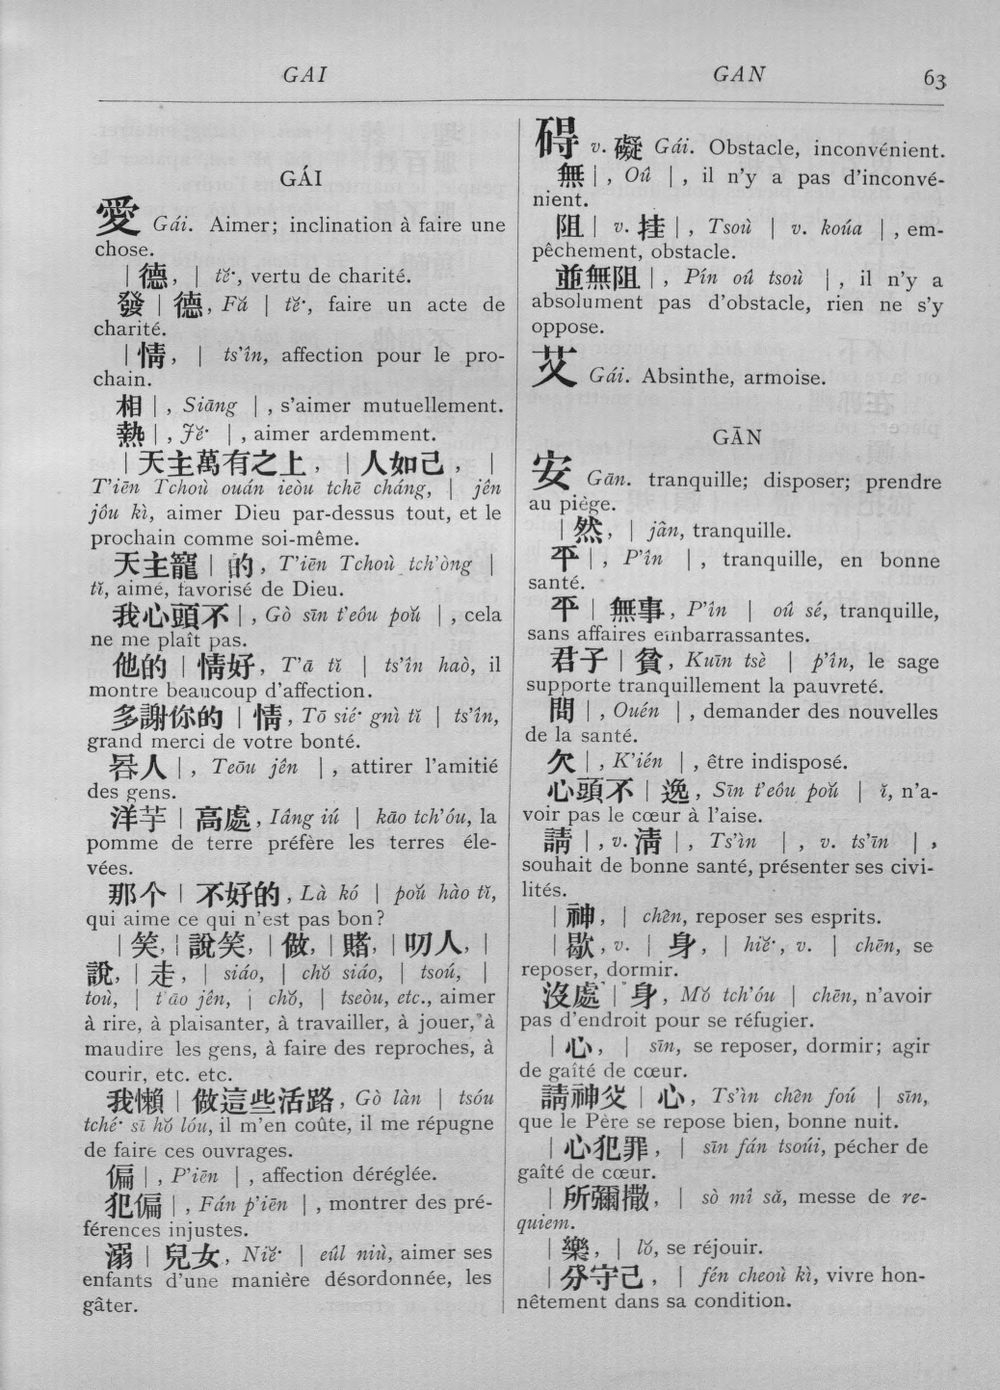 GAI
GAN
63
GÁI
愛 Gái. Aimer; inclination à faire une
chose.
| 德, | tĕ·, vertu de charité.
發 | 德, Fă | tĕ·, faire un acte de
charité.
| 情, | ts'în, affection pour le pro-
chain.
相 |, Siāng |, s'aimer mutuellement.
熱 |, Jĕ· |, aimer ardemment.
| 天主萬有之上, | 人如己, |
T'iēn Tchoù ouán ieòu tchē cháng, | jên
jôu kì, aimer Dieu par-dessus tout, et le
prochain comme soi-même.
天主寵 | 的, T'iēn Tchoù tch'òng |
tĭ, aimé, favorisé de Dieu.
我心頭不 |, Gò sīn t'eôu poŭ |, cela
ne me plaît pas.
他的 | 情好, T'ā tĭ | ts'în haò, il
montre beaucoup d'affection.
多謝你的 | 情, Tō sié· gnì tĭ | ts'în,
grand merci de votre bonté.
人 |, Teōu jên |, attirer l'amitié
des gens.
洋芋 | 高處, Iâng iú | kāo tch'óu, la
pomme de terre préfère les terres éle-
vées.
那个 | 不好的, Là kó | poŭ hào tĭ,
qui aime ce qui n'est pas bon?
| 笑, | 說笑, | 做, | 賭, | 叨人, |
說, | 走, | siáo, | chŏ siáo, | tsoú, |
toù, | t'āo jên, | chŏ, | tseòu, etc., aimer
à rire, à plaisanter, à travailler, à jouer, à
maudire les gens, à faire des reproches, à
courir, etc. etc.
我懶 | 做這些活路, Gò làn | tsóu
tché· sī hŏ lóu, il m'en coûte, il me répugne
de faire ces ouvrages.
偏 |, P'iēn |, affection déréglée.
犯偏 |, Fán p'iēn |, montrer des pré-
férences injustes.
溺 | 兒女, Niĕ· | eûl niù, aimer ses
enfants d'une manière désordonnée, les
gâter.
碍 v. 礙 Gái. Obstacle, inconvénient.
無 |, Oû |, il n'y a pas d'inconvé-
nient.
阻 | v. 挂 |, Tsoù | v. koúa |, em-
pêchement, obstacle.
並無阻 |, Pín oû tsoù |, il n'y a
absolument pas d'obstacle, rien ne s'y
oppose.
艾 Gái. Absinthe, armoise.
GĀN
安 Gān. tranquille; disposer; prendre
au piège.
| 然, | jân, tranquille.
平 |, P'în |, tranquille, en bonne
santé.
平 | 無事, P'în | oû sé, tranquille,
sans affaires embarrassantes.
君子 | 貧, Kuīn tsè | p'în, le sage
supporte tranquillement la pauvreté.
問 |, Ouén |, demander des nouvelles
de la santé.
欠 |, K'ién |, être indisposé.
心頭不 | 逸, Sīn t'eôu poŭ | ĭ, n'a-
voir pas le cœur à l'aise.
請 |, v. 清 |, Ts'ìn |, v. ts'īn |,
souhait de bonne santé, présenter ses civi-
lités.
| 神, | chên, reposer ses esprits.
| 歇, v. | 身, | hiĕ·, v. | chēn, se
reposer, dormir.
沒處 | 身, Mŏ tch'óu | chēn, n'avoir
pas d'endroit pour se réfugier.
| 心, | sīn, se reposer, dormir; agir
de gaîté de cœur.
請神父 | 心, Ts'ìn chên foú | sīn,
que le Père se repose bien, bonne nuit.
| 心犯罪, | sīn fán tsoúi, pécher de
gaîté de cœur.
| 所彌撒, | sò mî să, messe de re-
quiem.
| 樂, | lŏ, se réjouir.
| 分守己, | fén cheoù kì, vivre hon-
nêtement dans sa condition.